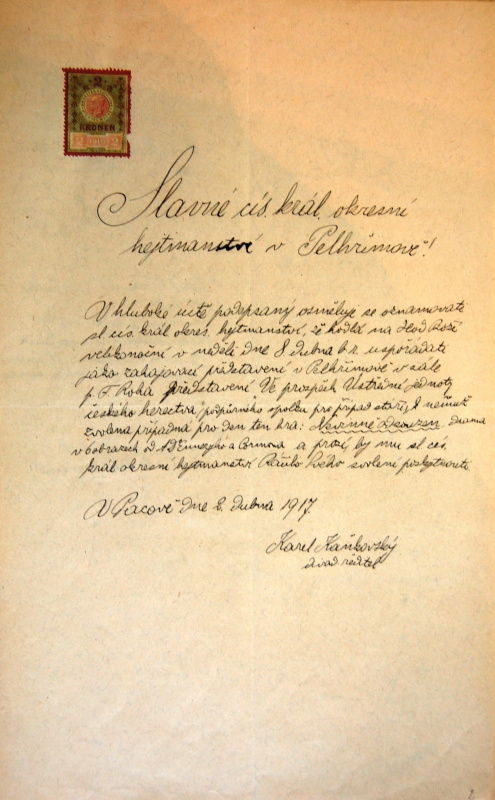 2
KRONEN
Slavné cís. král. okresní
hejtmanství v Pelhřimově!
V hluboké úctě podepsaný osměluje se oznamovati
sl. cís. král. okres. hejtmanství, že hodlá na Hod Boží
velikonoční v neděli dne 8 dubna b.r. uspořádati
jako zahajovací představení v Pelhřimově v sále
p. F. Roha představení Ve prospěch Ustřední jednoty
českého herectva
podpůrného spolku pro případ stáří,
zvolena případná pro den ten hra: Nevinně drama
v 6 obrazech od a Cormona a prosí by mu sl. cís.
král. okresní hejtmanství Ráčilo Svého svolení poskytnouti.
V Pacově dne 2. dubna 1917.
Karel Kaňkovský
divad. ředitel